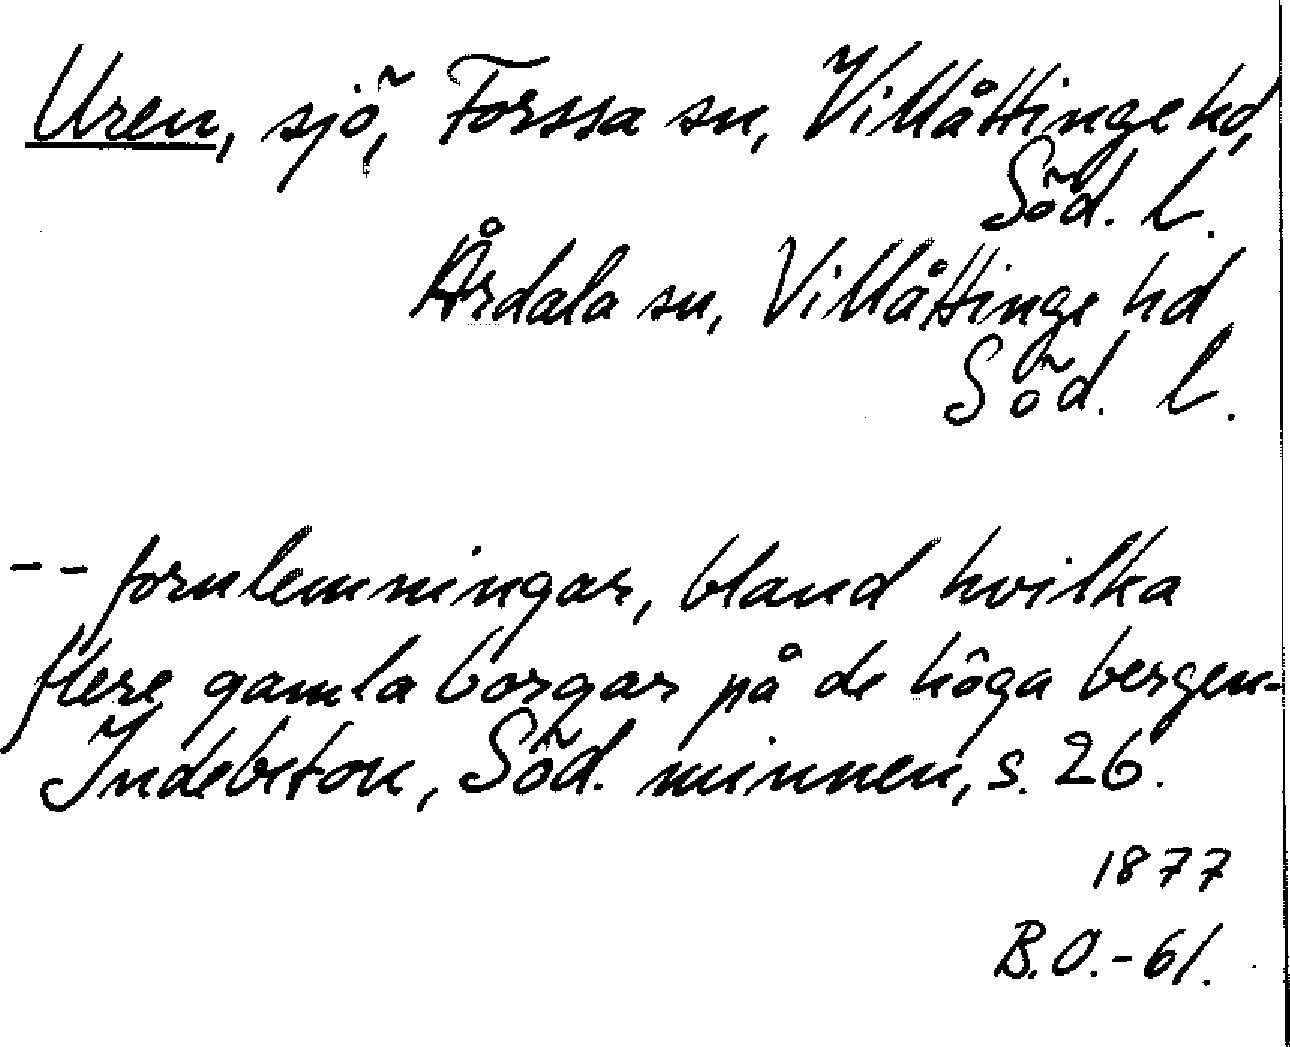 Uren, sjö, Forssa sn, Villåttinge hd,
Söd. l.
Årdala sn, Villåttinge hd
Söd. l.
-- fornlemningar, bland hvilka
flere gamla borgar på de höga bergen-
Indebetou, Söd. minnen, s. 26.
1877
B.O.-61.